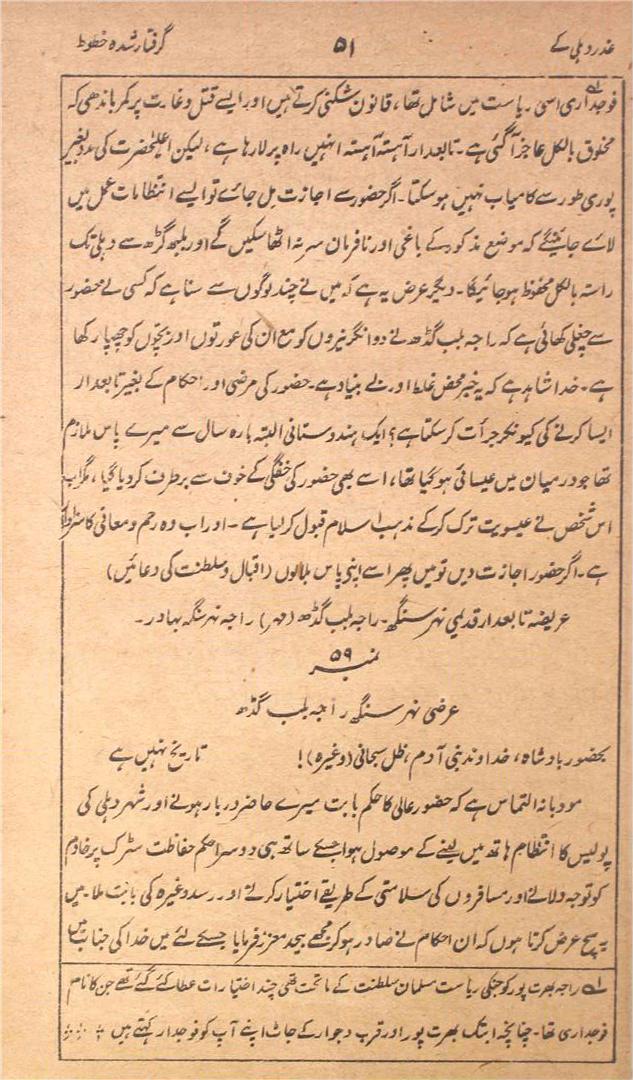 غدر دہلی کے ۵۱ گرفتار شدہ خطوط
فوجداری اسی ریاست میں شامل تھا، قانون شکنی کرتے ہیں اور ایسے قتل و غارت پر کمر باندھی کہ
مخلوق بالکل عاجز آ گئی ہے۔ تابعدار آہستہ آہستہ انہیں راہ پر لا رہا ہے، لیکن اعلیٰحضرت کی مدد بغیر
پوری طور سے کامیاب نہیں ہو سکتا۔ اگر حضور سے اجازت مل جائے تو ایسے انتظامات عمل میں
لائے جائینگے کہ موضع مذکور کے باغی اور نافرمان سر نہ اٹھا سکیں گے اور بلبھ گڑھ سے دہلی تک
راستہ بالکل محفوظ ہو جائیگا۔ دیگر عرض یہ ہے کہ میں نے چند لوگوں سے سنا ہے کہ کسی نے حضور
سے چغلی کھائی ہے کہ راجہ بلب گڈھ نے دو انگریزوں کو مع ان کی عورتوں اور بچوں کو چھپا رکھا
ہے۔ خدا شاہد ہے کہ یہ خبر محض غلط اور بے بنیاد ہے۔ حضور کی مرضی اور احکام کے بغیر تابعدار
ایسا کرنے کی کیونکر جرأت کر سکتا ہے؟ ایک ہندوستانی البتہ بارہ سال سے میرے پاس ملازم
تھا جو درمیان میں عیسائی ہو گیا تھا، اسے بھی حضور کی خفگی کے خوف سے برطرف کر دیا گیا، مگر اب
اس شخص نے عیسویت ترک کر کے مذہب اسلام قبول کر لیا ہے۔ اور اب وہ رحم و معافی کا سزاوار
ہے۔ اگر حضور اجازت دیں تو میں پھر اسے اپنی پاس بلالوں (اقبال و سلطنت کی دعائیں)
عریضہ تابعدار قدیمی نہر سنگھ۔ راجہ بلب گڈھ (مہر) راجہ نہر سنگھ بہادر۔
نمبر ۵۹
عرضی نہر سنگھ راجہ بلب گڈھ
بحضور بادشاہ، خداوند بنی آدم، ظل سبحانی (وغیرہ)! تاریخ نہیں ہے
مودبانہ التماس ہے کہ حضور عالی کا حکم بابت میرے حاضر دربار ہونے اور شہر دہلی کی
پولیس کا انتظام ہاتھ میں لینے کے موصول ہوا جسکے ساتھ ہی دوسرا حکم حفاظت سڑک پر خادم
کو توجہ دلانے اور مسافروں کی سلامتی کے طریقے اختیار کرنے اور رسد وغیرہ کی بابت ملا۔ میں
یہ سچ عرض کرتا ہوں کہ ان احکام نے صادر ہو کر مجھے بیحد معزز فرمایا جسکے لئے میں خدا کی جناب میں
لے راجہ بھرت پور کو جنکی ریاست مسلمان سلطنت کے ماتحت تھی چند اختیارات عطا کئے گئے تھے جن کا نام
فوجداری تھا۔ چنانچہ ابتک بھرت پور اور قرب و جوار کے جاٹ اپنے آپ کو فوجدار کہتے ہیں